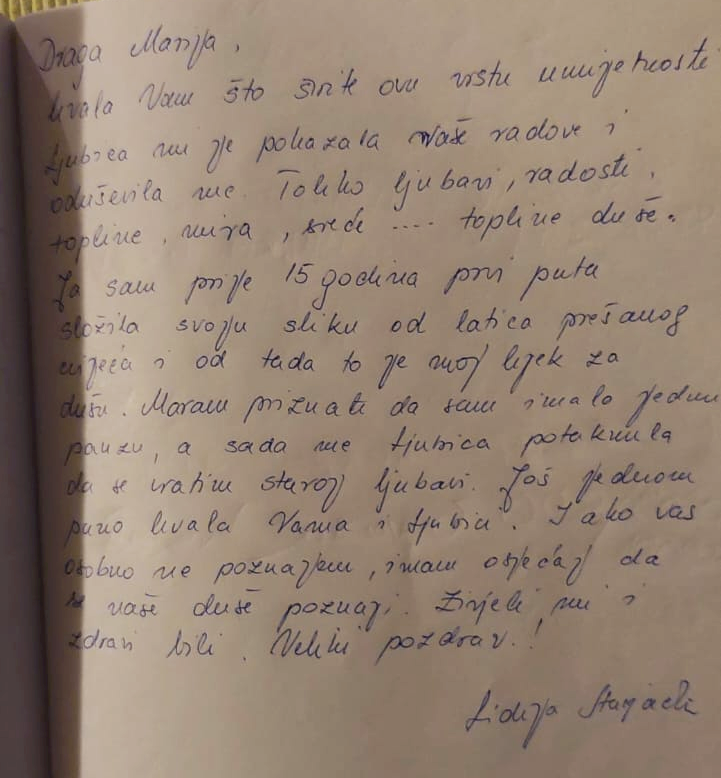 Draga Marija,
hvala Vam što širite ovu vrstu umijetnosti
Ljubica mi je pokazala Vaše radove i
oduševila me. Toliko ljubavi, radosti,
topline, mira, sreće .... topline duše.
Ja sam prije 15 godina prvi puta
složila svoju sliku od latica prešanog
cvijeća i od tada to je moj lijek za
dušu. Moram priznati da sam imala jednu
pauzu, a sada me Ljubica potaknula
da se vratim staroj ljubavi. Još jednom
puno hvala Vama i Ljubici. Iako vas
osobno ne poznajem, imam osjećaj da
se naše duše poznaju. Živjeli mi i
zdravi bili. Veliki pozdrav.!
Lidija